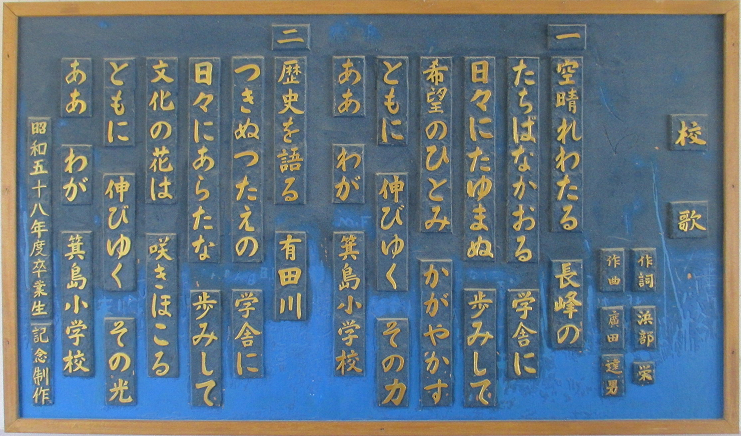 校歌
作詞 浜部 栄
作曲 廣田 達男
一
空晴れわたる 長峰の
たちばなかおる 学舎に
日々にたゆまぬ 歩みして
希望のひとみ かがやかす
ともに 伸びゆく その力
ああ わが 箕島小学校
二
歴史を語る 有田川
つきぬつたえの 学舎に
日々にあらたな 歩みして
文化の花は 咲きほこる
ともに 伸びゆく その光
ああ わが 箕島小学校
昭和五十八年度卒業生 記念制作